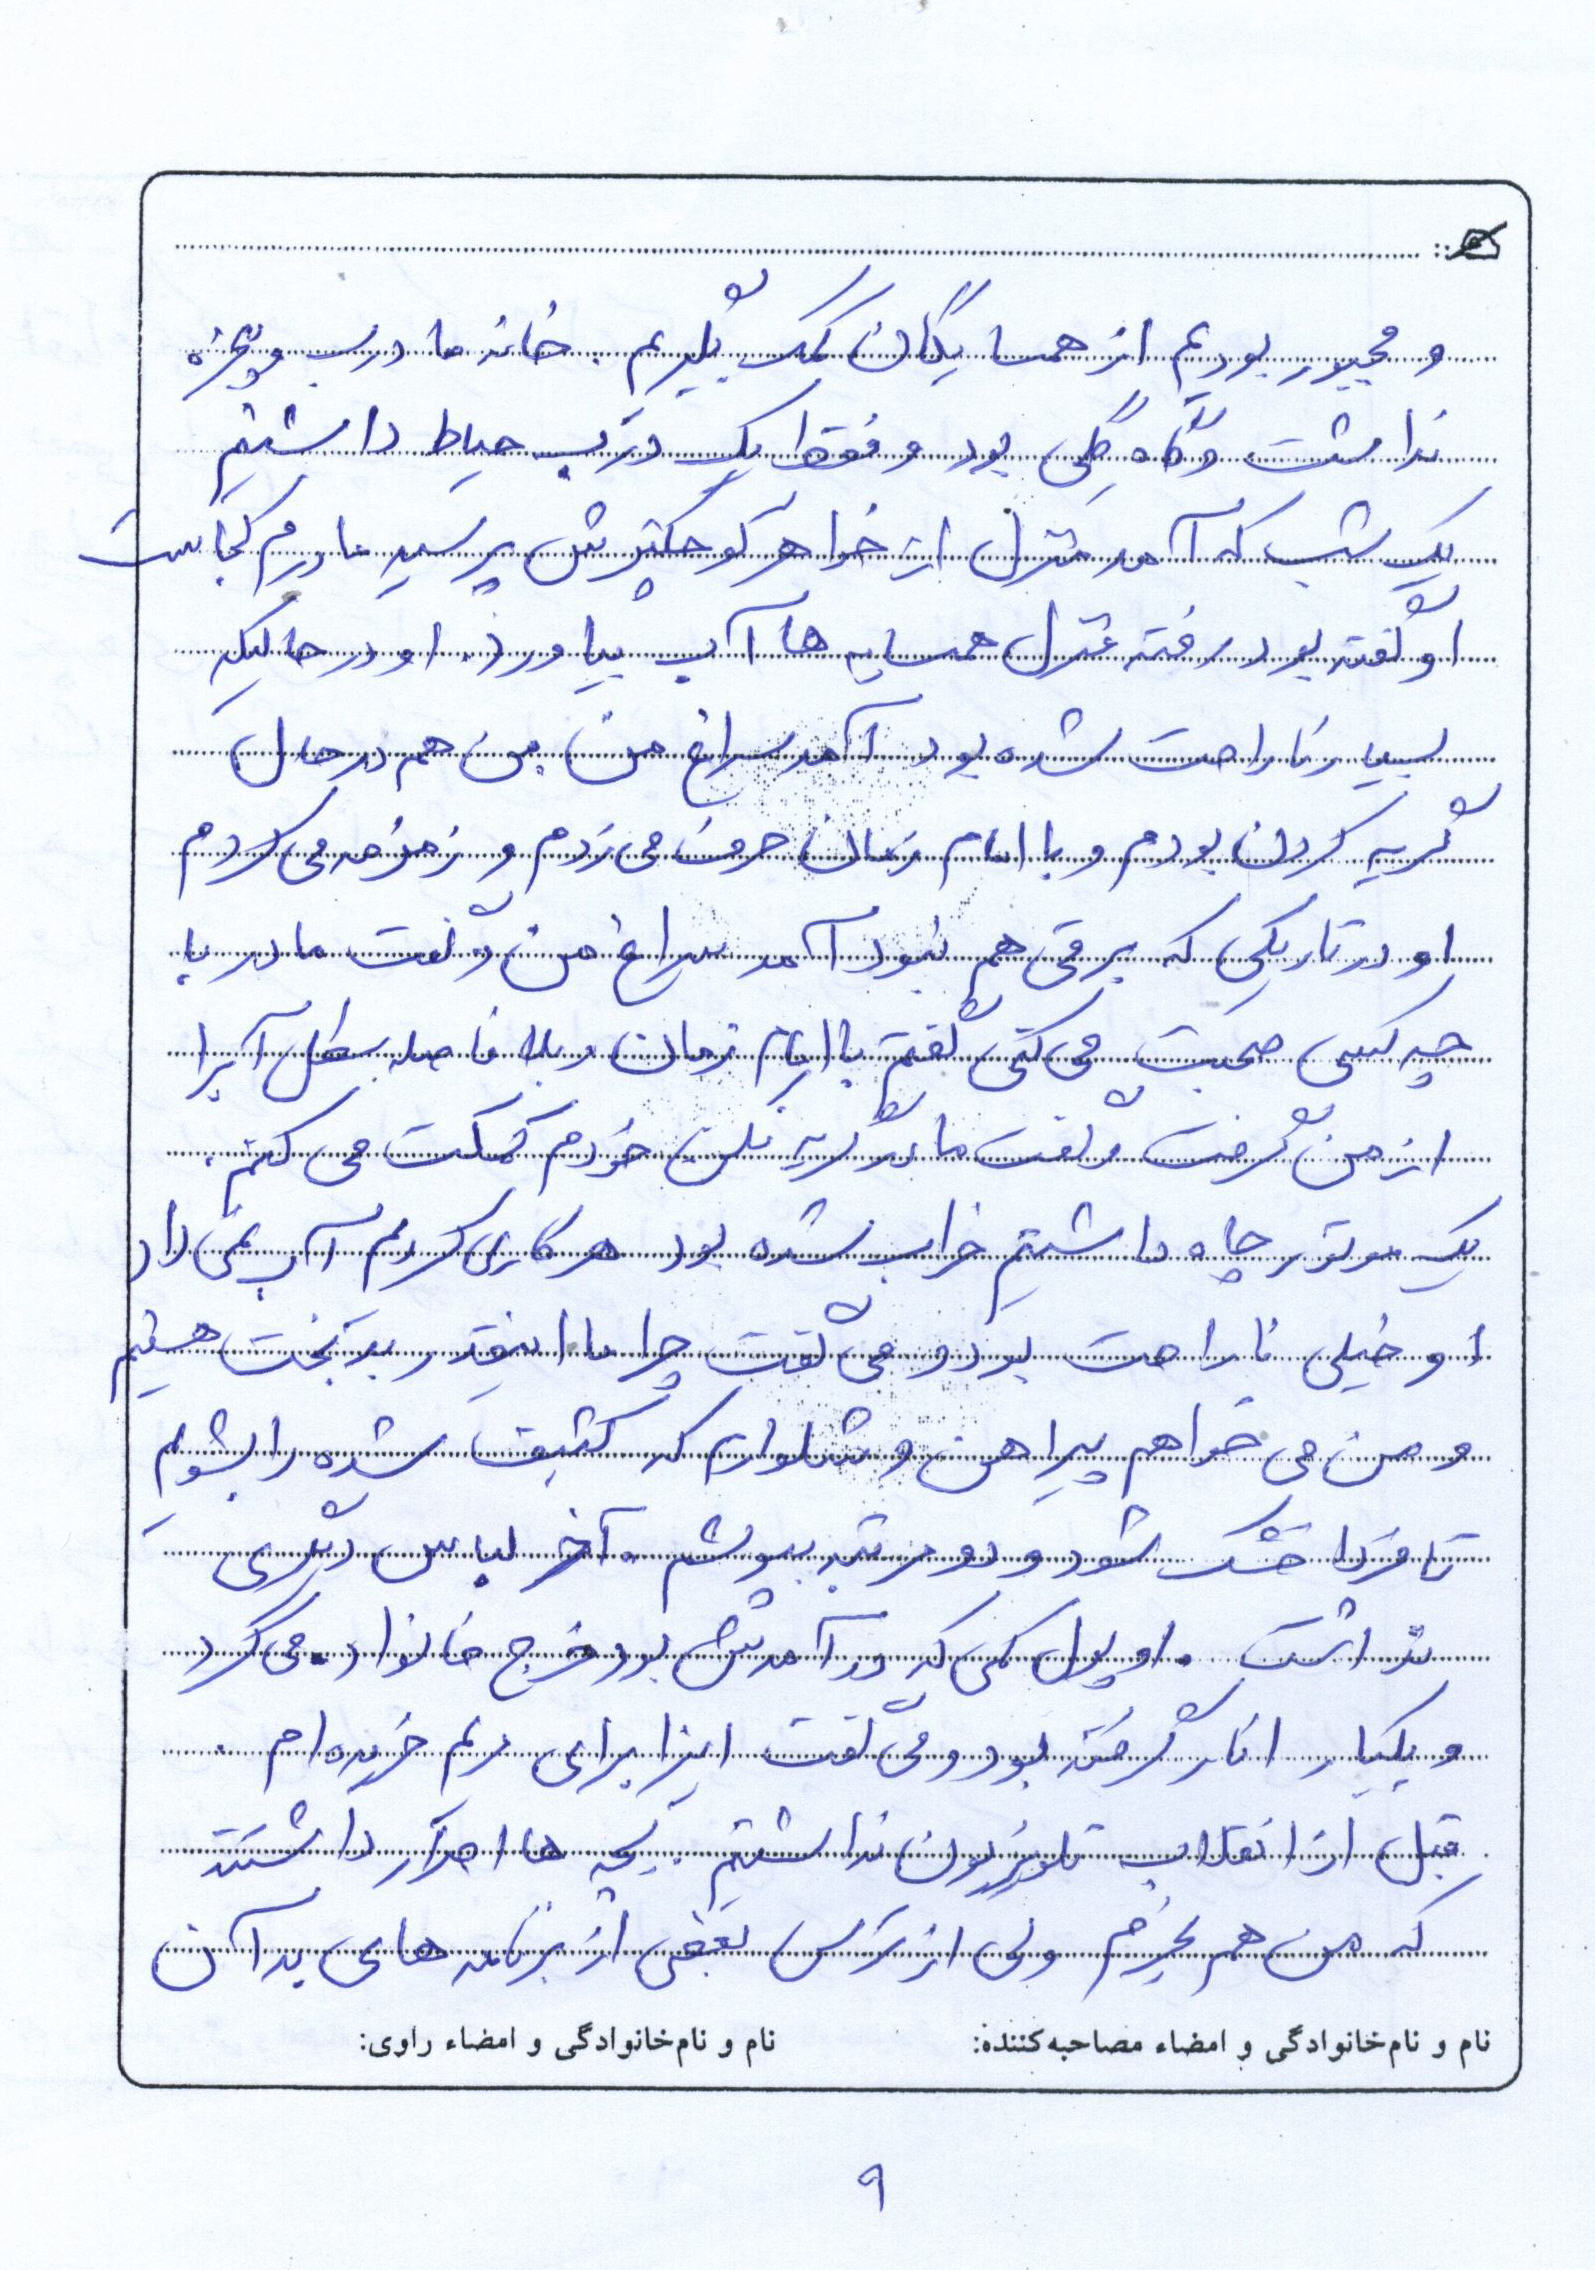 و مجبور بودیم از همسایگان کمک بگیریم. خانه ما درب و پنجره
نداشت و کاه گلی بود و فقط یک درب حیاط داشتیم
یک شب که آمد منزل از خواهر کوچکترش پرسید مادرم کجاست
او گفته بود رفته منزل همسایه ها آب بیاورد. او در حالیکه
بسیار ناراحت شده بود آمد سراغ من. من هم در حال
گریه کردن بودم و با امام زمان حرف می زدم و زمزمه می کردم
او در تاریکی که برقی هم نبود آمد سراغ من و گفت مادر با
چه کسی صحبت می کنی گفتم با امام زمان و بلافاصله سطل آبرا
از من گرفت و گفت مادر گریه نکن خودم کمکت می کنم.
یک موتور چاه داشتیم خراب شده بود هر کاری کردم آب نمی داد
او خیلی ناراحت بود و می گفت چرا ما اینقدر بدبخت هستیم
و من می خواهم پیراهن و شلوارم که کثیف شده را بشویم
تا فردا خشک شود و دو مرتبه بپوشم. آخر لباس دیگری
نداشت. او پول کمی که درآمدش بود خرج خانواده می کرد
و یکبار انار گرفته بود و می گفت اینرا برای مریم خریده ام.
قبل از انقلاب تلویزیون نداشتیم. بچه ها اصرار داشتند
که من هم بخرم ولی از ترس بعضی از برنامه های بد آن
نام و نام‌خانوادگی و امضاء مصاحبه‌کننده: نام و نام‌خانوادگی و امضاء راوی:
۹